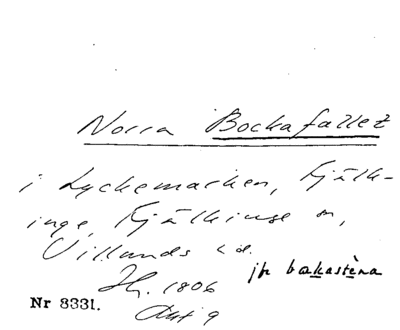 Norra Bockafallet
i Lyckemarken, Kjälk-
inge, Kjälkinge sn,
Villands hd.
jfr bɑkastɛ̀na
Hj. 1806
Akt 9
Nr 8331.